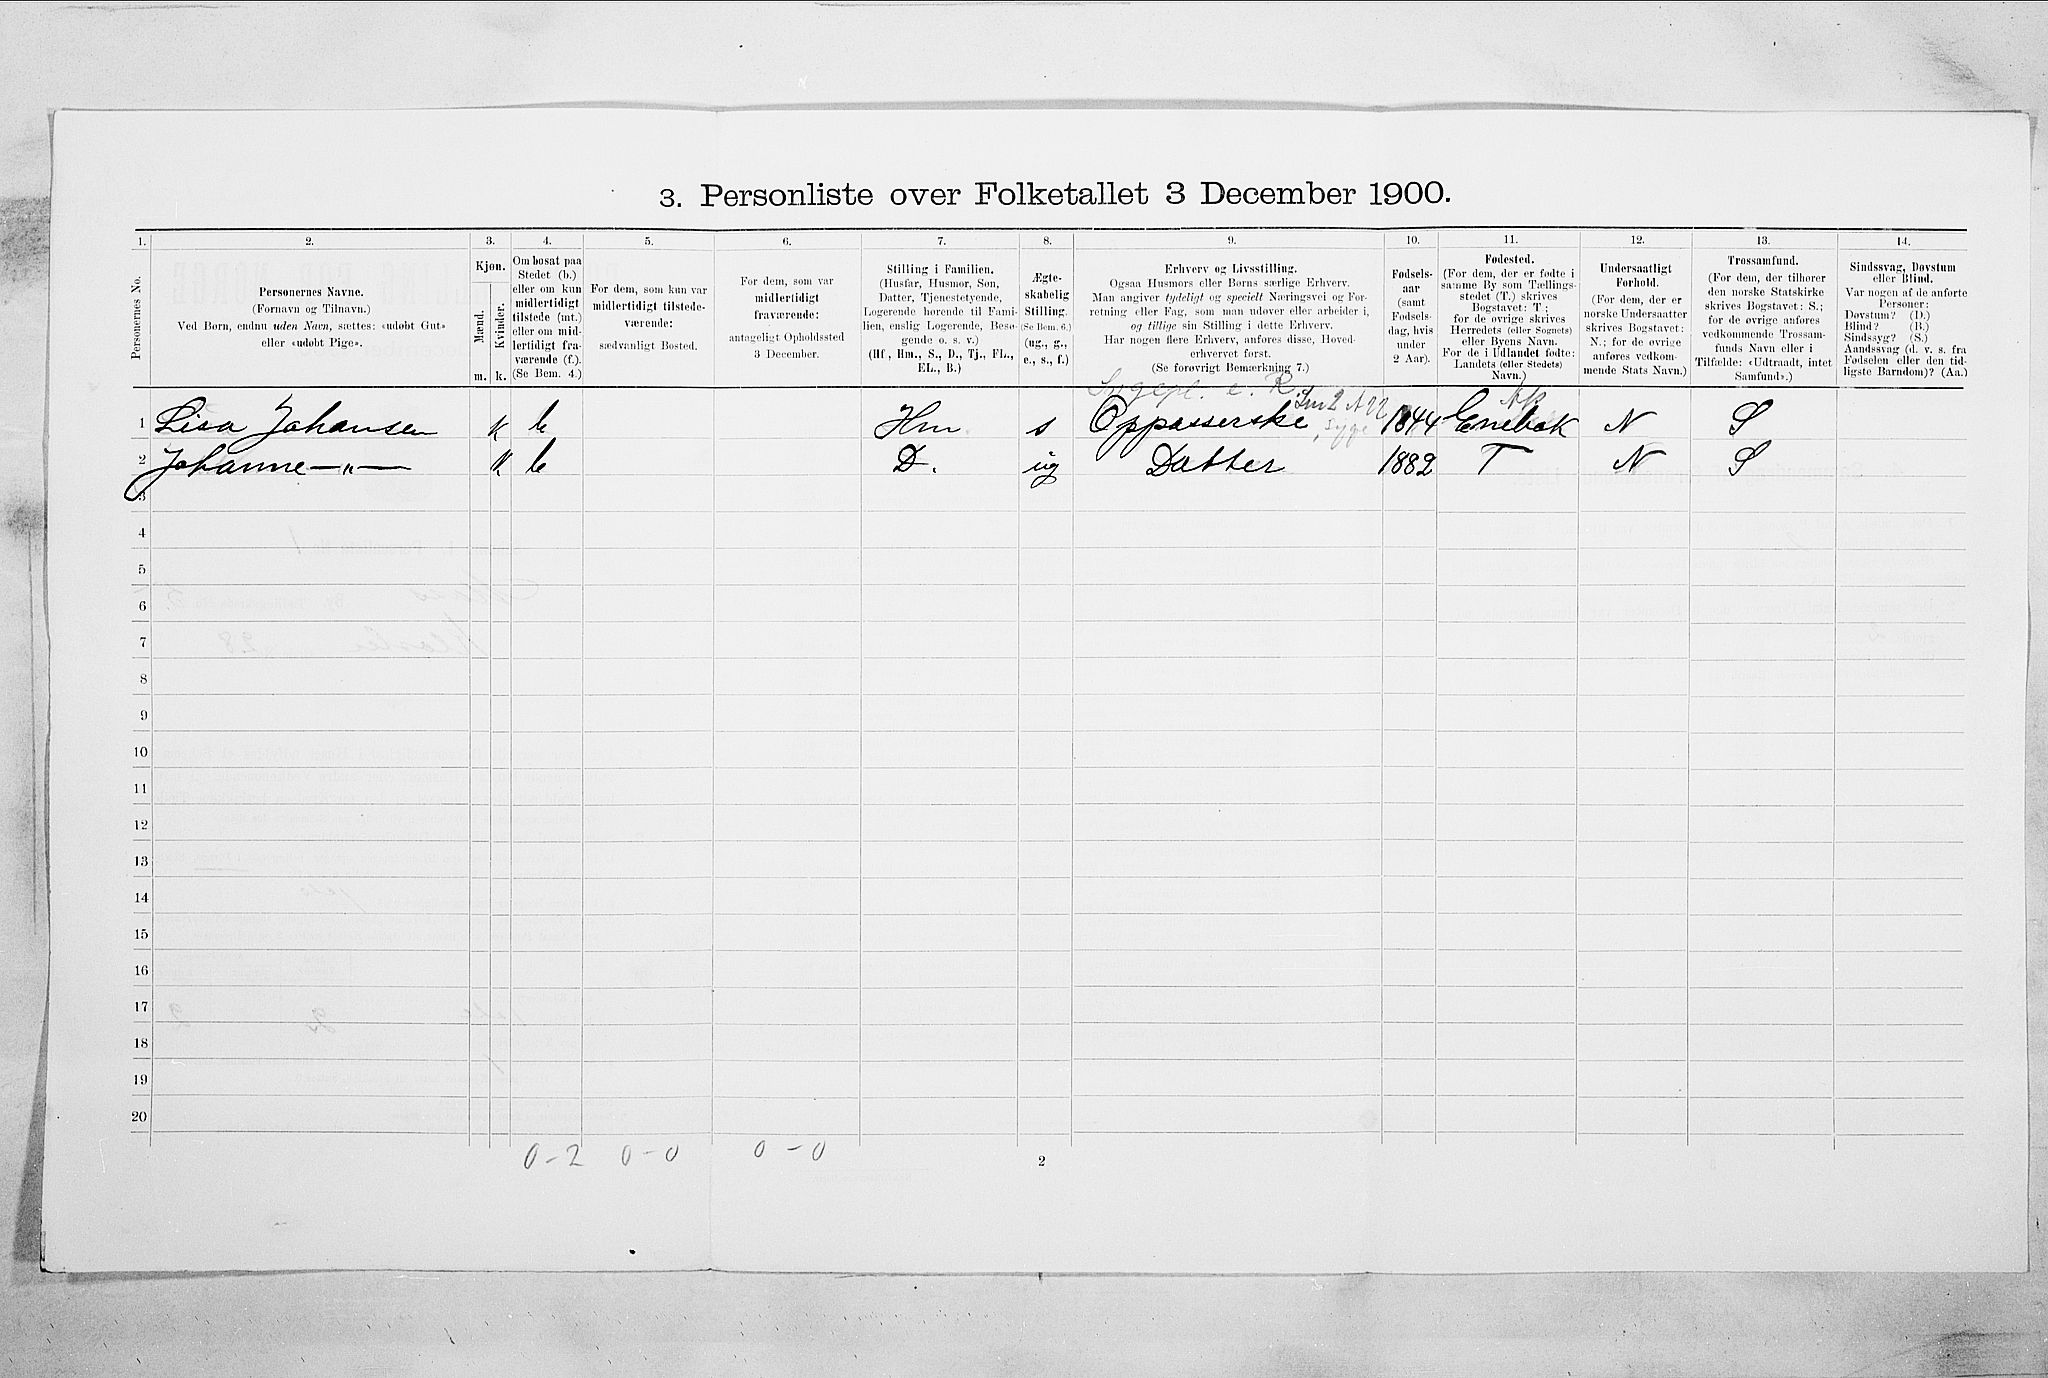 3. Personliste over Folketallet 3 December 1900.
1. 2. 3. 4. 5. 6. 7. 8. 9. 10. 11. 12. 13. 14.
Personernes No.
Personernes Navne.
(Fornavn og Tilnavn.)
Ved Børn, endnu uden Navn, sættes: «udøbt Gut»
eller «udøbt Pige».
Kjøn.
Mænd.
Kvinder.
m. k.
Om bosat paa
Stedet (b.)
eller om kun
midlertidigt
tilstede (mt.)
eller om mid-
lertidigt fra-
værende (f.).
(Se Bem. 4.)
For dem, som kun var
midlertidigt tilstede-
værende:
sædvanligt Bosted.
For dem, som var
midlertidigt
fraværende:
antageligt Opholdssted
3 December.
Stilling i Familien.
(Husfar, Husmor, Søn,
Datter, Tjenestetyende,
Logerende hørende til Fami-
lien, enslig Logerende, Besø-
gende o. s. v.)
(Hf., Hm., S., D., Tj., FL.,
EL., B.)
Ægte-
skabelig
Stilling.
(Se Bem. 6.)
(ug., g.,
e., s., f.)
Erhverv og Livsstilling.
Ogsaa Husmors eller Børns særlige Erhverv.
Man angiver tydeligt og specielt Næringsvei og For-
retning eller Fag, som man udøver eller arbeider i,
og tillige sin Stilling i dette Erhverv.
Har nogen flere Erhverv, anføres disse, Hoved-
erhvervet først.
(Se forøvrigt Bemærkning 7.)
Fødsels-
aar
(samt
Fødsels-
dag, hvis
under
2 Aar).
Fødested.
(For dem, der er fødte i
samme By som Tællings-
stedet (T.) skrives
Bogstavet: T;
for de øvrige skrives
Herredets (eller Sognets)
eller Byens Navn.
For de i Udlandet fødte:
Landets (eller Stedets)
Navn.)
Undersaatligt
Forhold.
(For dem, der er
norske Undersaatter
skrives Bogstavet:
N.; for de øvrige
anføres vedkom-
mende Stats Navn.)
Trossamfund.
(For dem, der tilhører
den norske Statskirke
skrives Bogstavet: S.;
for de øvrige anføres
vedkommende Trossam-
funds Navn eller i
Tilfælde: «Udtraadt, intet
Samfund».)
Sindssvag, Døvstum
eller Blind.
Var nogen af de anførte
Personer:
Døvstum? (D.)
Blind? (B.)
Sindssyg? (S.)
Aandssvag (d. v. s. fra
Fødselen eller den tid-
ligste Barndom)? (Aa.)
Sygepl. e. R.
Ak
1 Lisa Johansen k b Hm s Oppasserske 1844 Enebak N S
2 Johanne —"— k b D. ug Datter 1882 T N S
3
4
5
6
7
8
9
10
11
12
13
14
15
16
17
18
19
20
0-2 0-0 0-0
2